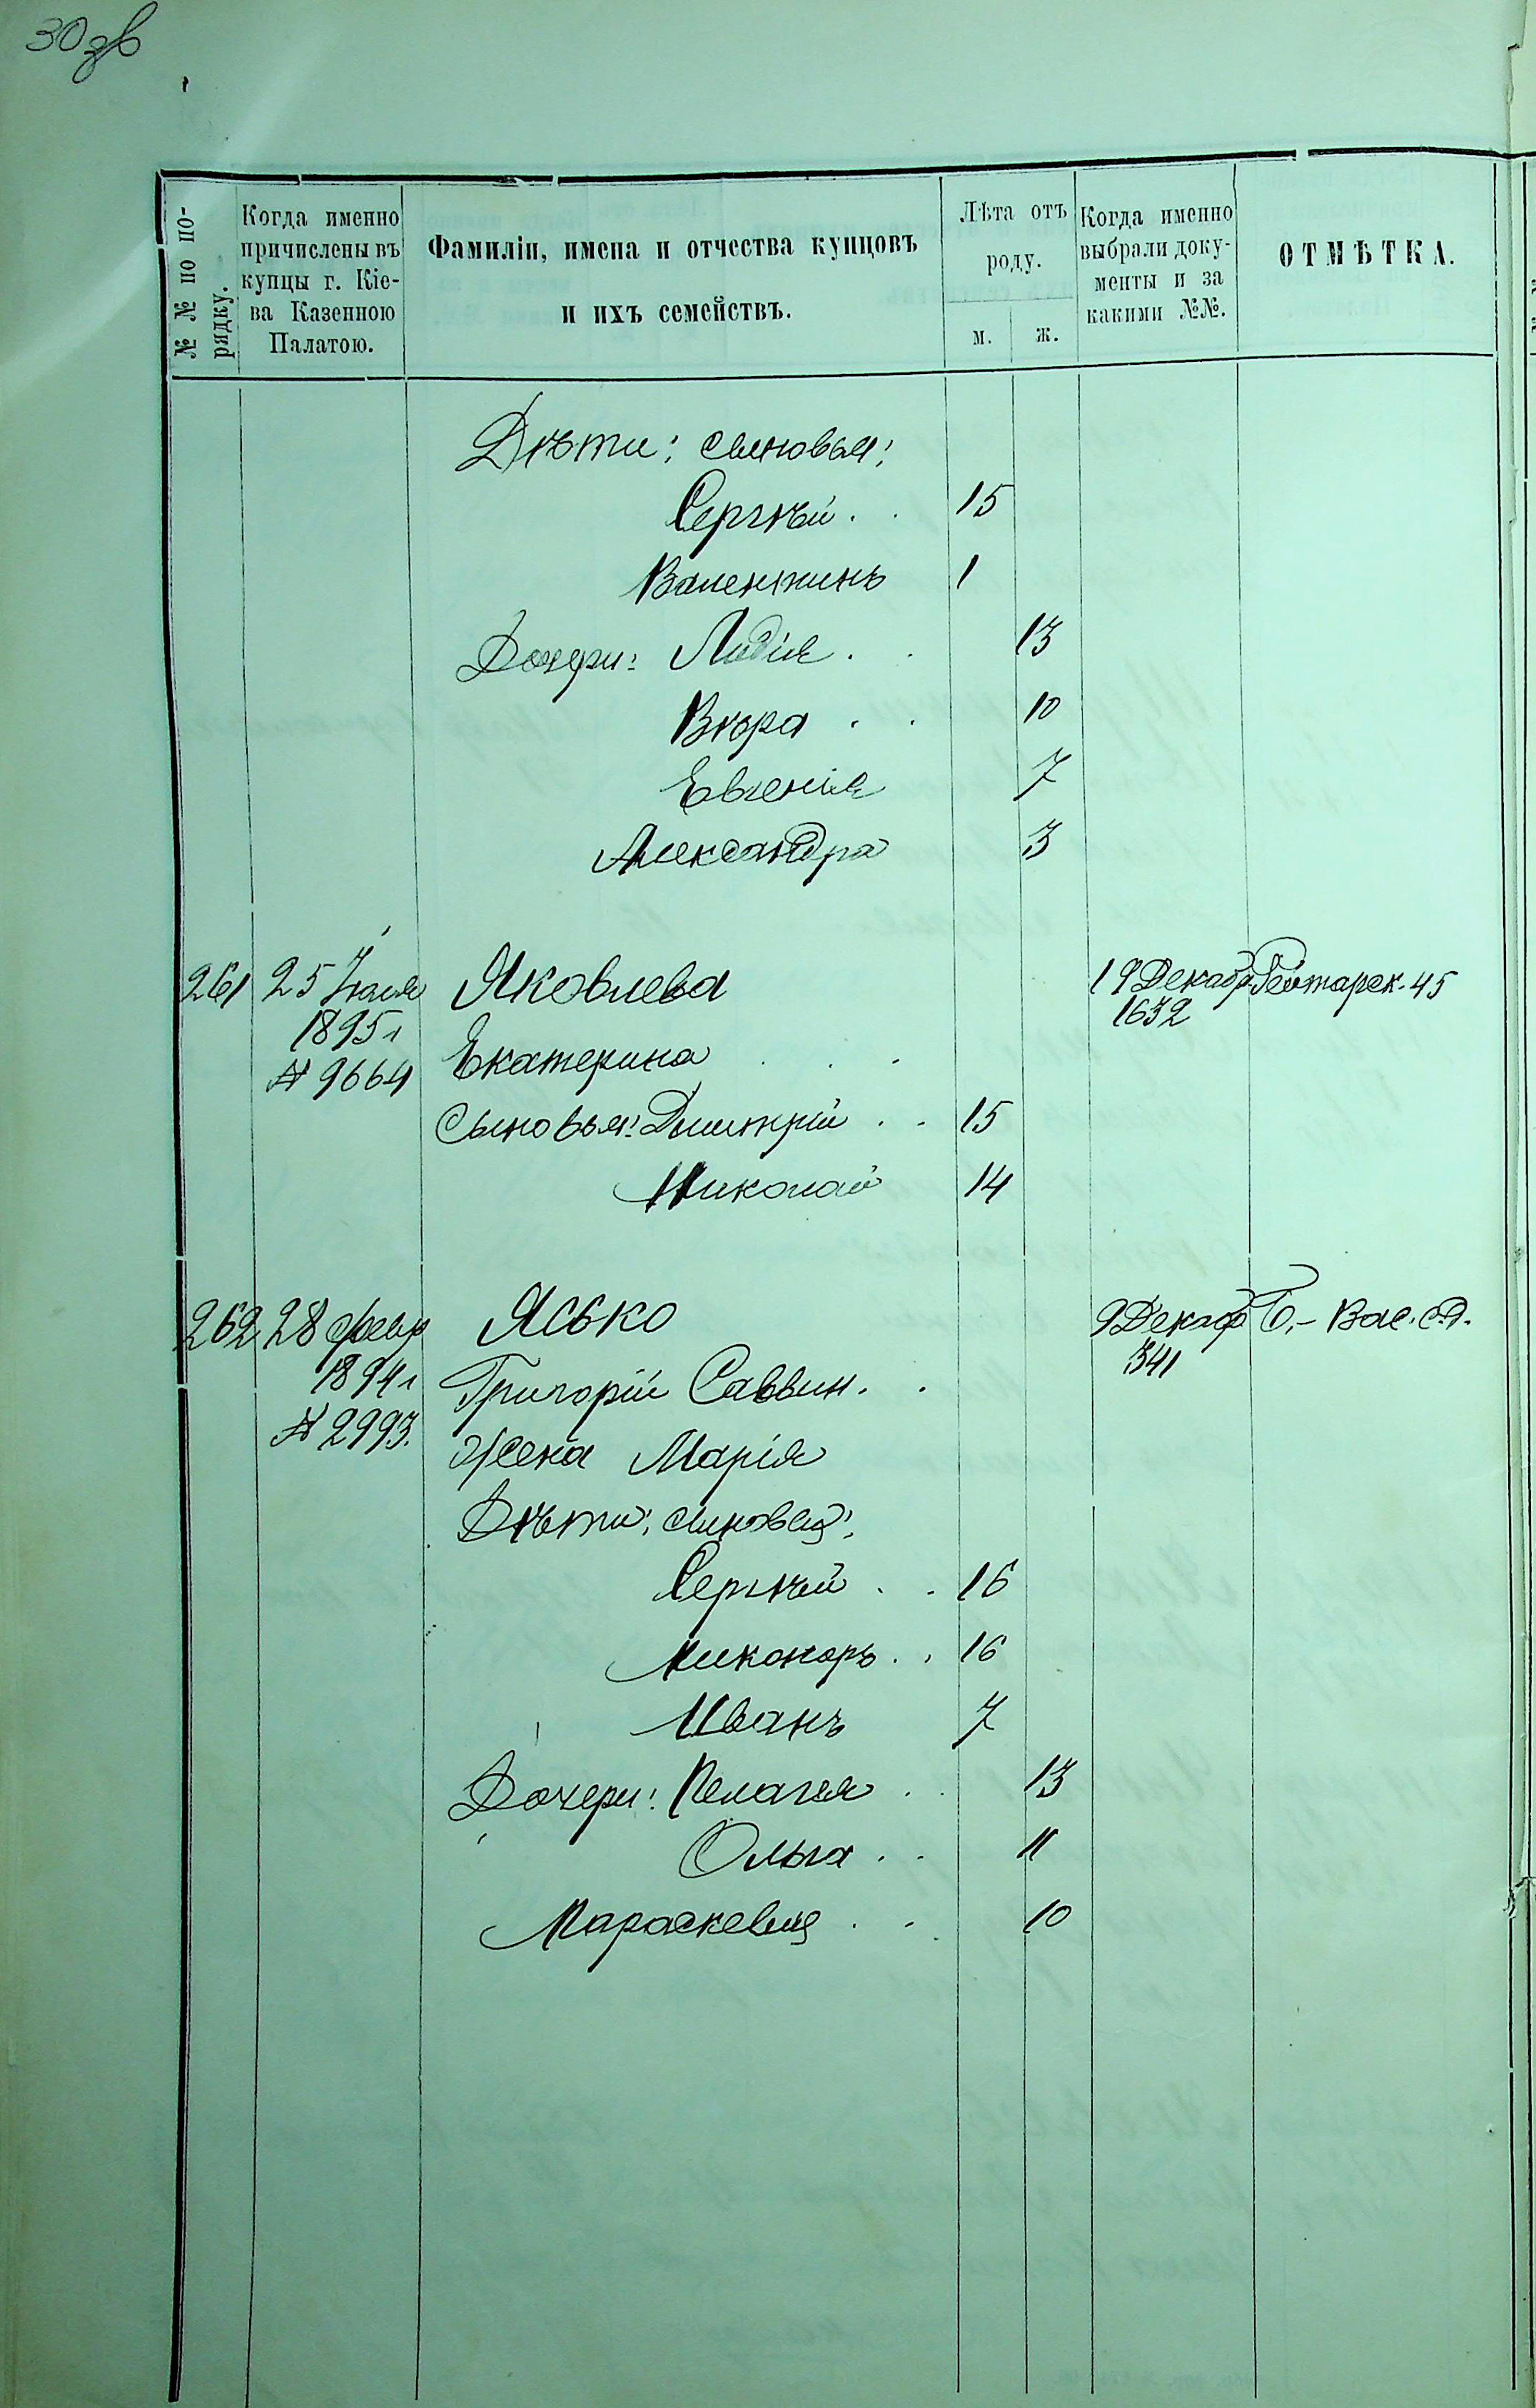 30зв
№ № по по-
рядку.
Когда именно
причислены въ
купцы г. Кіе-
ва Казенною
Палатою.
Фамиліи, имена и отчества купцовъ
и ихъ семействъ.
Лѣта отъ
роду.
м. ж.
Когда именно
выбрали доку-
менты и за
какими №№.
ОТМѢТКА.
Дѣти: сыновья:
Сергѣй . . 15
Валентинъ 1
Дочери: Лидія . . 13
Вѣра . . 10
Евгенія 7
Александра 3
261 25 Іюля Яковлева 19 Декабр. Рейтарск. 45
1895 г 1632
№ 9664 Екатерина . .
Сыновья: Дмитрій . . 15
Николай 14
262 28 февр Ясько 9 Декабр Б.- Вас. с.д.
1894 г 341
Григорій Саввин. .
№ 2993. Жена Марія
Дѣти: сыновья:
Сергѣй . . 16
Никоноръ . . 16
Иванъ 7
Дочери: Пелагея . . 13
Ольга . . 11
Параскевія . . 10